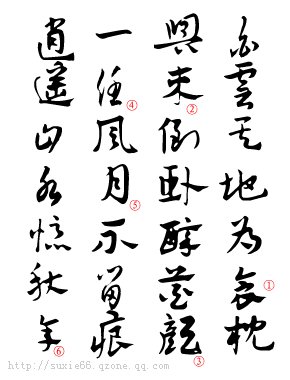 白雲天地為衾①枕
興来②倒卧醉花顏③
一任④風月⑤不留痕
逍遥山水憶秋年⑥
http://suxie66.qzone.qq.com